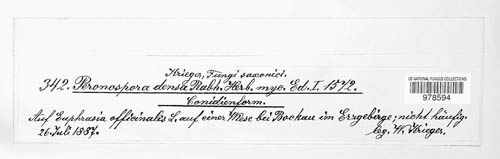 Krieger, Fungi saxonici.
342. Peronospora densa Rabh. Herb. myc. Ed. I. 1572.
Conidienform.
Auf Euphrasia officinalis L. auf einer Wiese bei Bockau im Erzgebirge; nicht häufig.
26. Juli 1887. leg. W. Krieger.
US NATIONAL FUNGUS COLLECTIONS
978594